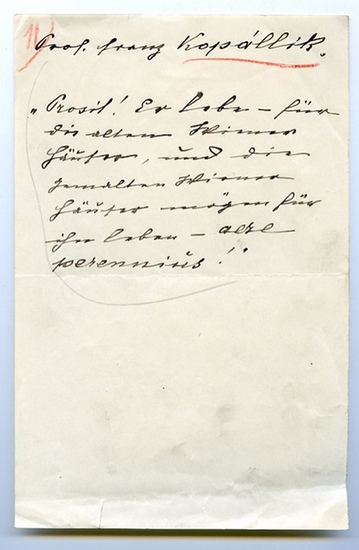 11)
Prof. Franz Kopállik.
„Prosit! Er lebe – für
die alten Wiener
Häuser, und die
gemalten Wiener
Häuser mögen für
ihn leben – aere
perennius!"